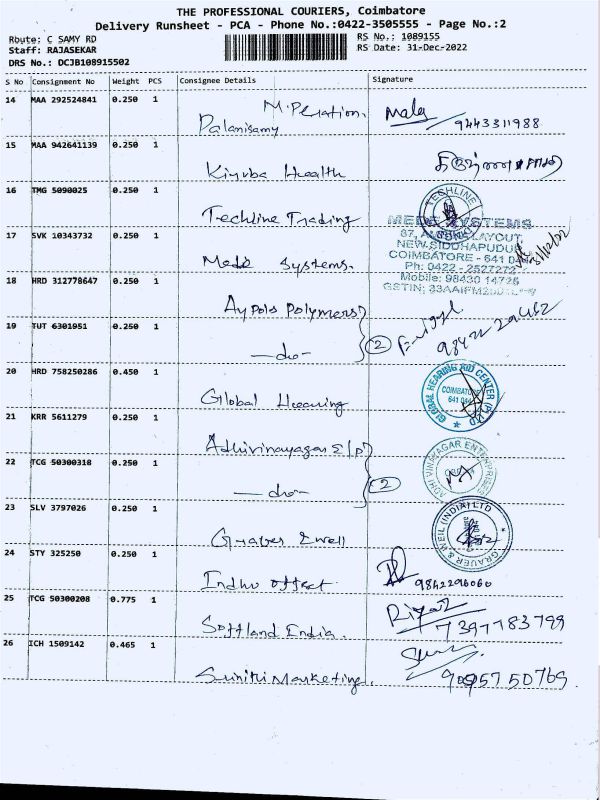 THE PROFESSIONAL COURIERS, Coimbatore
Delivery Runsheet - PCA - Phone No.:0422-3505555 - Page No.:2
Route: C SAMY RD
RS No.: 1089155
Staff: RAJASEKAR
RS Date: 31-Dec-2022
DRS No.: DCJB108915502
S No Consignment No Weight PCS Consignee Details Signature
14 MAA 292524841 0.250 1
Palanisamy
Mala
9443311988
15 MAA 942641139 0.250 1
Health
16 TMG 5090025 0.250 1
Techline Trading
TECHLINE
17 SVK 10343732 0.250 1
Mede Systems.
MEDE SYSTEMS
LAYOUT
NEW SIDDHAPUDUR
COIMBATORE - 641 044
Ph: 0422 - 2527272
Mobile: 98430 14725
GSTIN:
31/12/22
18 HRD 312778647 0.250 1
Polymers
19 TUT 6301951 0.250 1
-do-
2
20 HRD 758250286 0.450 1
Global Hearing
GLOBAL HEARING AID CENTER (P) LTD
COIMBATORE
21 KRR 5611279 0.250 1
Adhivinayagar E/P
22 TCG 50300318 0.250 1
-do-
2
ADHI VINAYAGAR ENTERPRISES
23 SLV 3797026 0.250 1
Grauer & Weil
GRAUER & WEIL (INDIA) LTD
24 STY 325250 0.250 1
Indhu offset.
9842296060
25 TCG 50300208 0.775 1
Softland India.
7397783799
26 ICH 1509142 0.465 1
Marketing.
9095750769